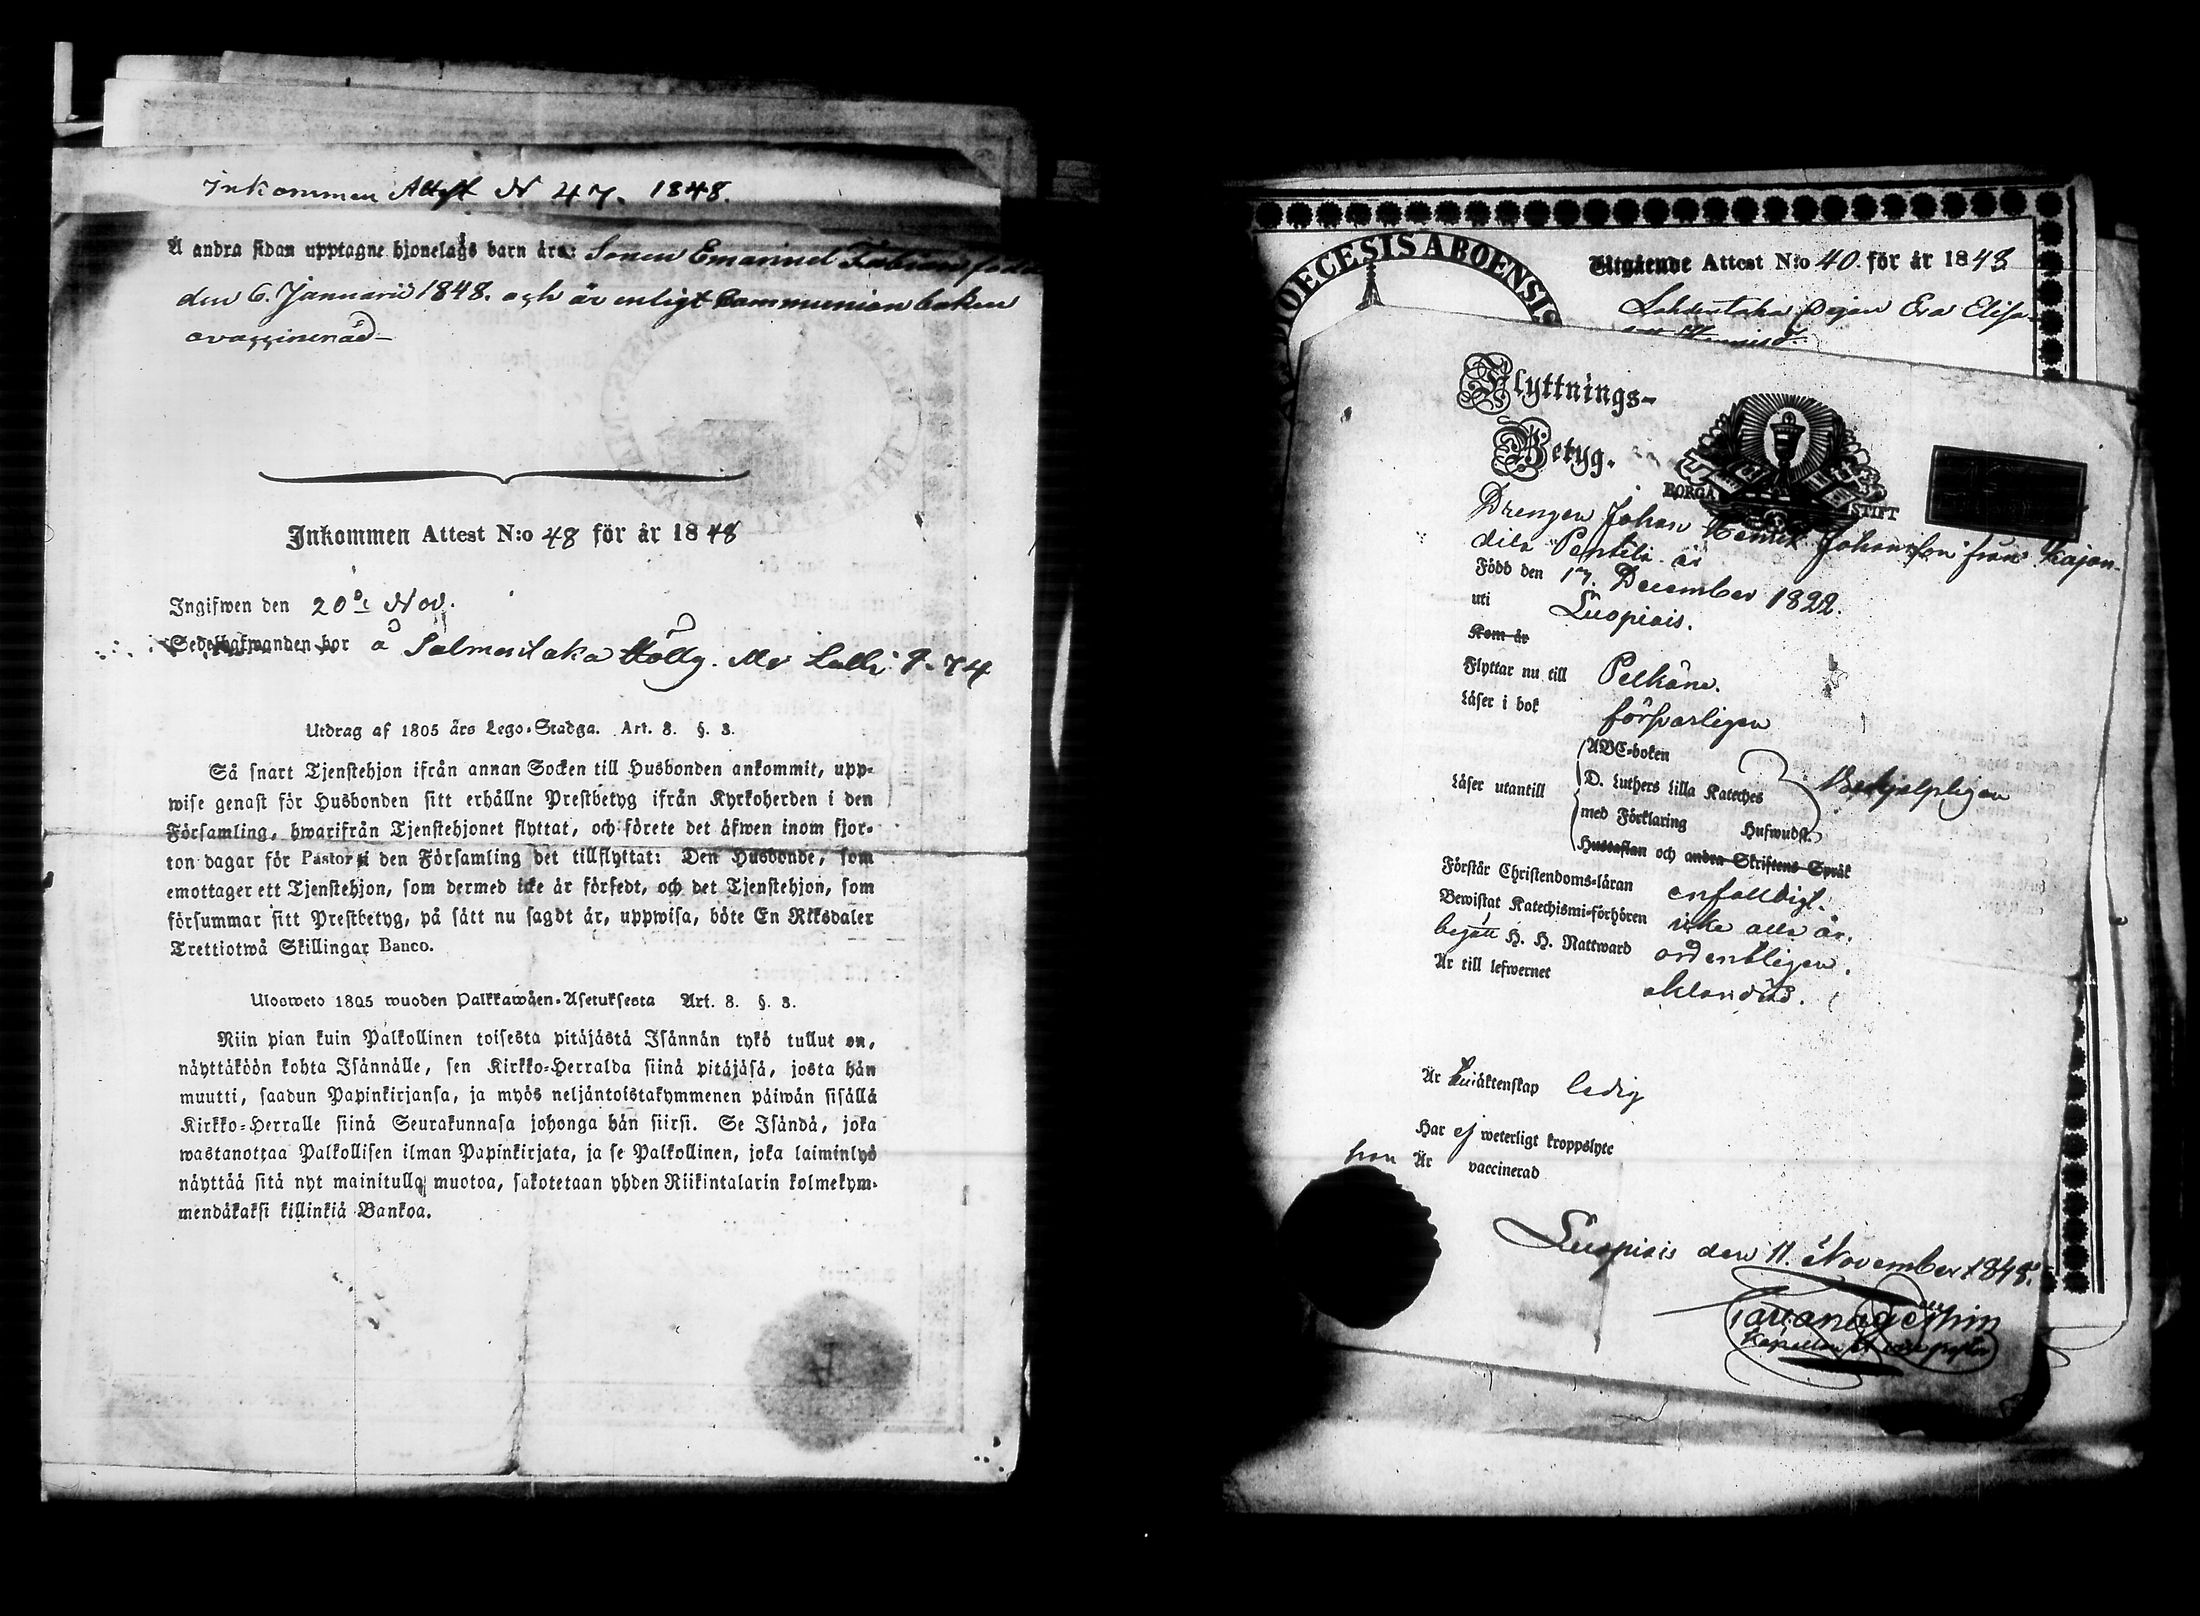 Inkommen Attest N 47. 1848.
Å andra sidan upptagne hjonelags barn äro: Sonen Emanuel Fabian född
den 6. Januarii 1848. och är enligt Communion boken
ovaccinerad
Inkommen Attest N:o 48 för år 1848
Ingifwen den 20de Nov.
Sedelhafwanden bor å
Utdrag af 1805 års Lego-Stadga. Art. 8. §. 3.
Så snart Tjenstehjon ifrån annan Socken till Husbonden ankommit, upp-
wise genast för Husbonden sitt erhållne Prestbetyg ifrån Kyrkoherden i den
Församling, hwarifrån Tjenstehjonet flyttat, och förete det äfwen inom fjor-
ton dagar för Pastor i den Församling det tillflyttat: Den Husbonde, som
emottager ett Tjenstehjon, som dermed icke är försedt, och det Tjenstehjon, som
försummar sitt Prestbetyg, på sätt nu sagdt är, uppwisa, böte En Riksdaler
Trettiotwå Skillingar Banco.
Ulosweto 1805 wuoden Palkkawäen-Asetuksesta Art. 8. §. 3.
Niin pian kuin Palkollinen toisesta pitäjästä Isännän tykö tullut on,
näyttäköön kohta Isännälle, sen Kirkko-Herralda siinä pitäjäsä, josta hän
muutti, saadun Papinkirjansa, ja myös neljäntoistakymmenen päiwän sisällä
Kirkko-Herralle siinä Seurakunnasa johonga hän siirsi. Se Isändä, joka
wastanottaa Palkollisen ilman Papinkirjata, ja se Palkollinen, joka laiminlyö
näyttää sitä nyt mainitulla muotoa, sakotetaan yhden Riikintalarin kolmekym-
mendäkaksi killinkiä Bankoa.
DIOECESIS ABOENSIS
Utgående Attest N:o 40. för år 1848
Pigan Eva Elisa-
Flyttnings-
Betyg.
BORGÅ STIFT
Drengen Johan Henrik Johansson från Kajan-
dila Penttilä är
Född den 17. December 1822.
uti Luopiois.
Kom år
Flyttar nu till Pelkäne.
Läser i bok försvarligen
Läser utantill
ABC-boken
D. Luthers Lilla Kateches
med Förklaring Hufwudst.
Hustaflan och andra Skriftens Språk
Behjelpligen
Förstår Christendoms-läran enfalldigt.
Bewistat Katechismi-förhören icke alla år.
begått H. H. Nattward ordentligen.
Är till lefwernet oklandrad.
Är äktenskap ledig
Har ej weterligt kroppslyte
Är vaccinerad
Luopiois den 11. November 1848.